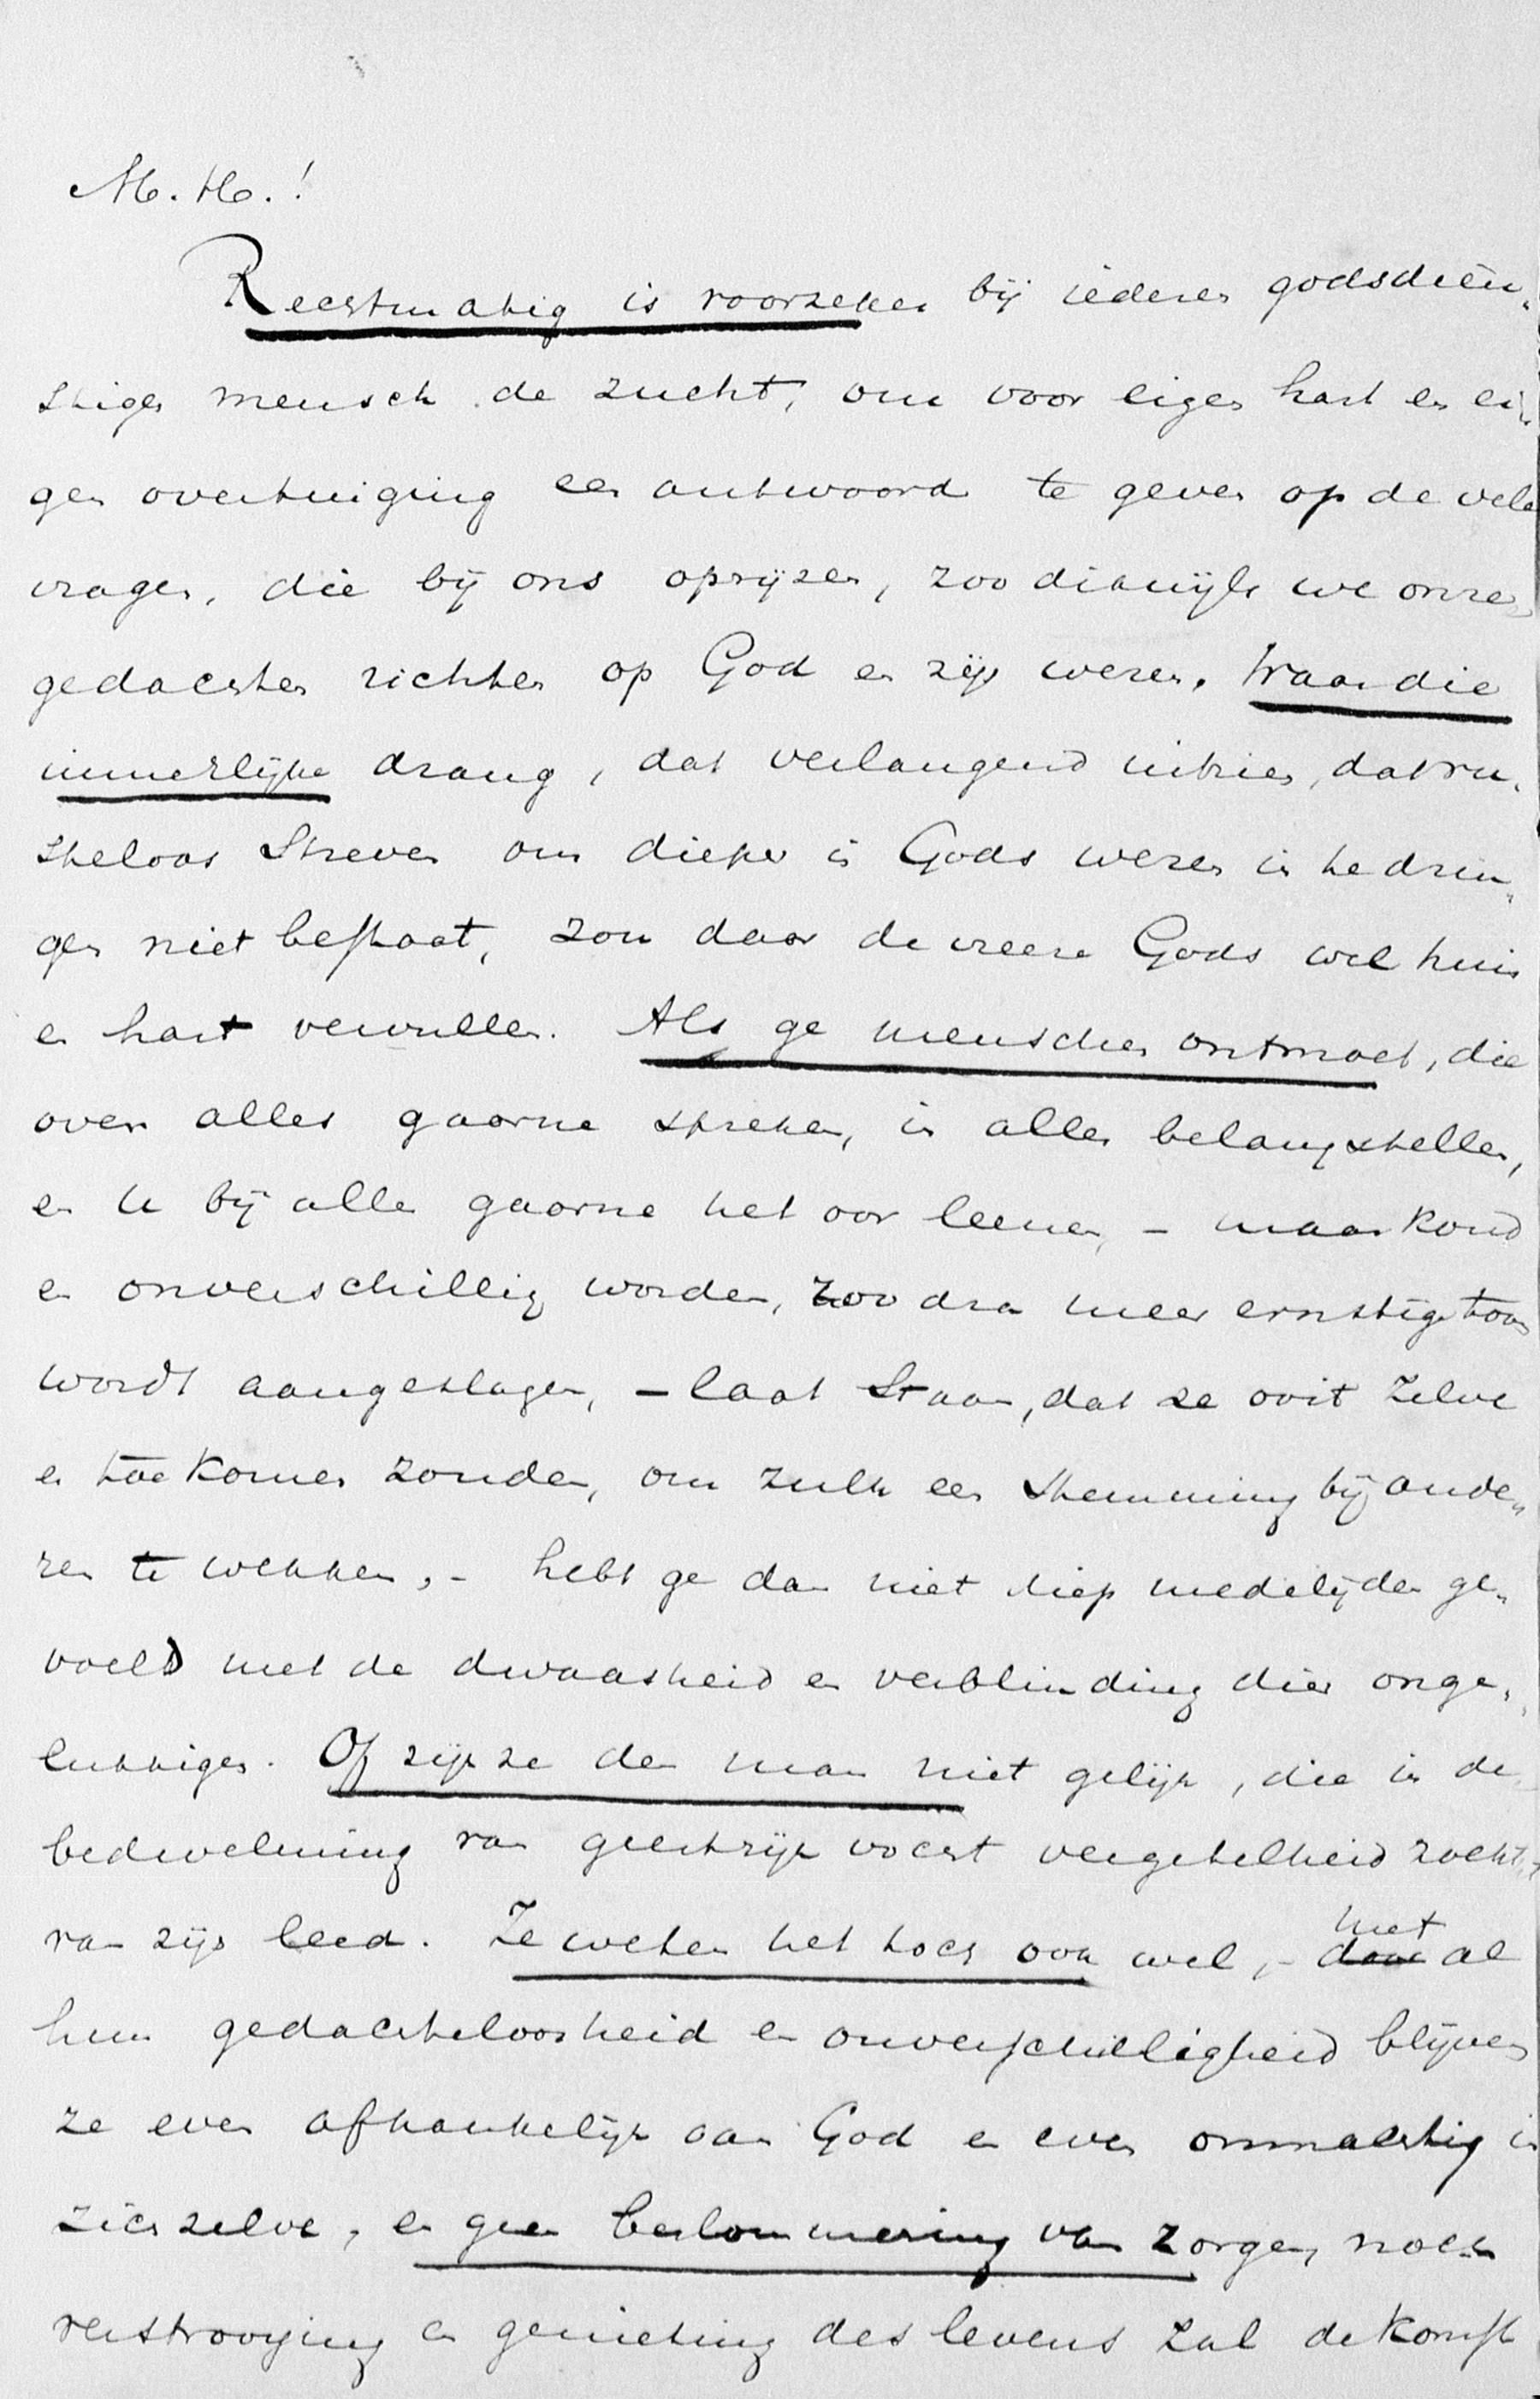 M. H.!
Rechtmatig is voorzeker bij iederen godsdien-
stigen mensch de zucht, om voor eigen hart en ei-
gen overtuiging een antwoord te geven op de vele
vragen, die bij ons oprijzen, zoo dikwijls we onze
gedachten richten op God en zijn wezen. Waar die
innerlijke drang, dat verlangend uitzien, dat ru-
steloos streven om dieper in Gods wezen in te drin-
gen niet bestaat, zou daar de vreeze Gods wel huis
en hart vervullen. Als ge menschen ontmoet, die
over alles gaarne spreken, in alles belangstellen,
en U bij alles gaarne het oor leenen, – maar koud
en onverschillig worden, zoodra meer ernstige toon
wordt aangeslagen, – laat staan, dat ze ooit zelve
er toe komen zouden, om zulk een stemming bij ande-
ren te wekken, – hebt ge dan niet diep medelijden ge-
voeld met de dwaasheid en verblinding dier onge-
lukkigen. Of zijn ze den man niet gelijk, die in de
bedwelming van geestrijk vocht vergetelheid zocht
van zijn leed. Ze weten het toch ook wel, – met al
hun gedachteloosheid en onverschilligheid blijven
ze even afhankelijk van God en even onmachtig in
zich zelve, en geen beslommering van zorgen, noch
verstrooijing en genieting des levens zal de komst